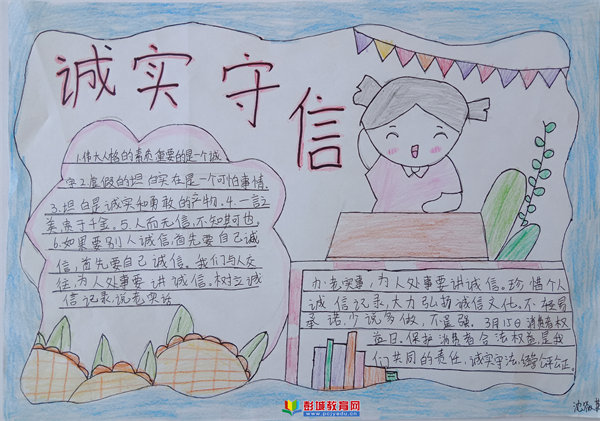 诚实守信
1.伟大人格的素质重要的是一个诚
字2.虚假的坦白实在是一个可怕事情.
3.坦白是诚实和勇敢的产物.4.一言之
美贵于千金.5.人而无信,不知其可也.
6.如果要别人诚信,首先要自己诚
信,首先要自己诚信。我们与人交
往,为人处事要讲诚信。树立诚
信记录,说老实话
办老实事,为人处事要讲诚信。珍惜个人
诚信记录,大力弘扬诚信文化。不轻易
承诺,少说多做,不逞强。3月15日消费者权
益日.保护消费者合法权益是我
们共同的责任,诚实守法,公平公正。
彭城教育网
www.pcjyedu.cn